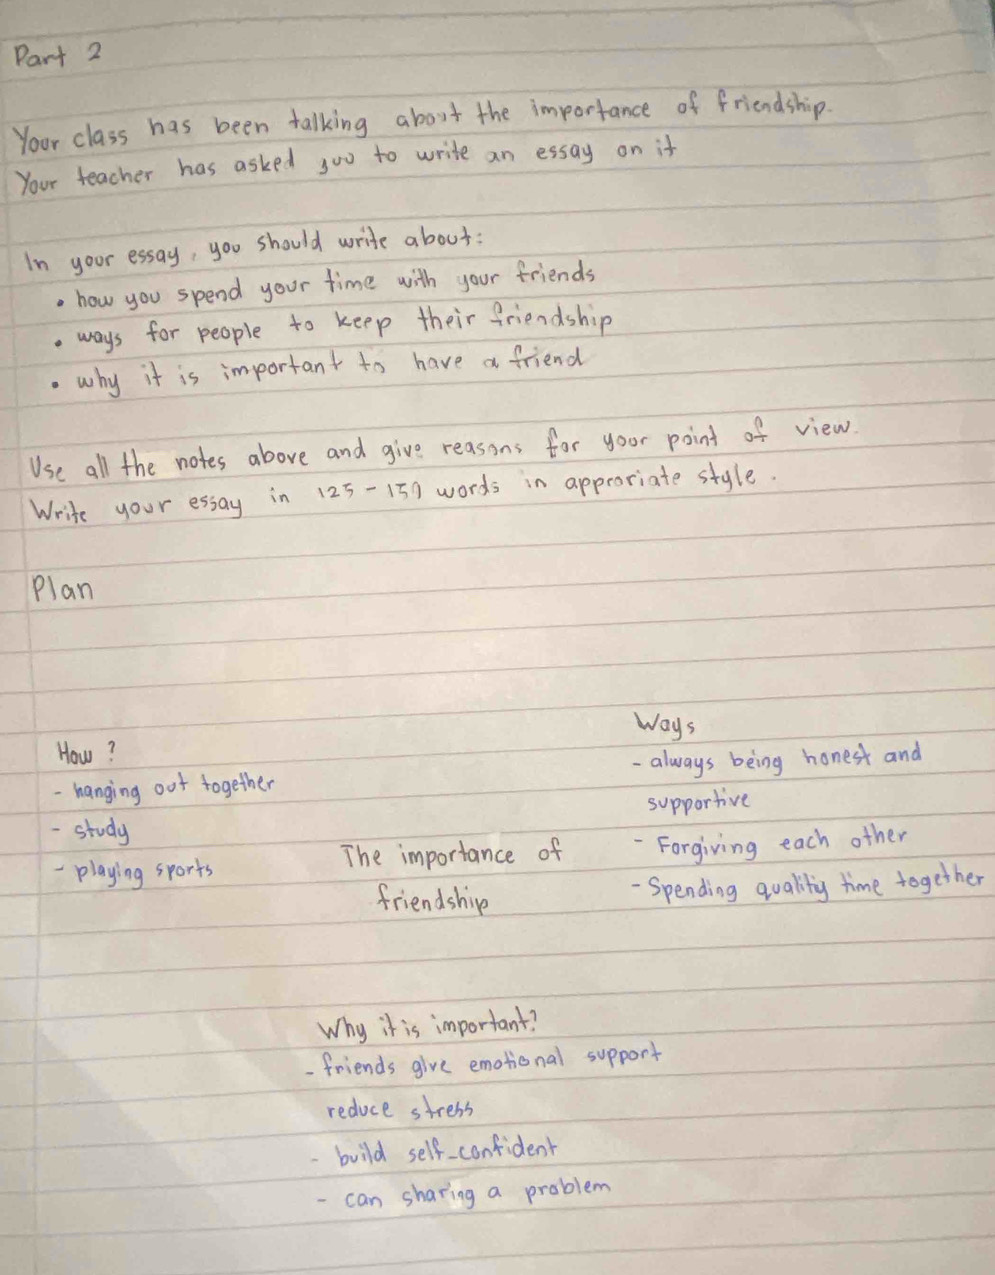 Part 2
Your class has been talking about the importance of friendship.
Your teacher has asked you to write an essay on it
In your essay, you should write about:
• how you spend your time with your friends
• ways for people to keep their friendship
• why it is important to have a friend
Use all the notes above and give reasons for your point of view.
Write your essay in 125-150 words in approriate style.
Plan
How?
- hanging out together
- study
- playing sports
The importance of
friendship
Ways
- always being honest and
supportive
- Forgiving each other
- Spending quality time together
Why it is important?
- friends give emotional support
reduce stress
- build self-confident
- can sharing a problem